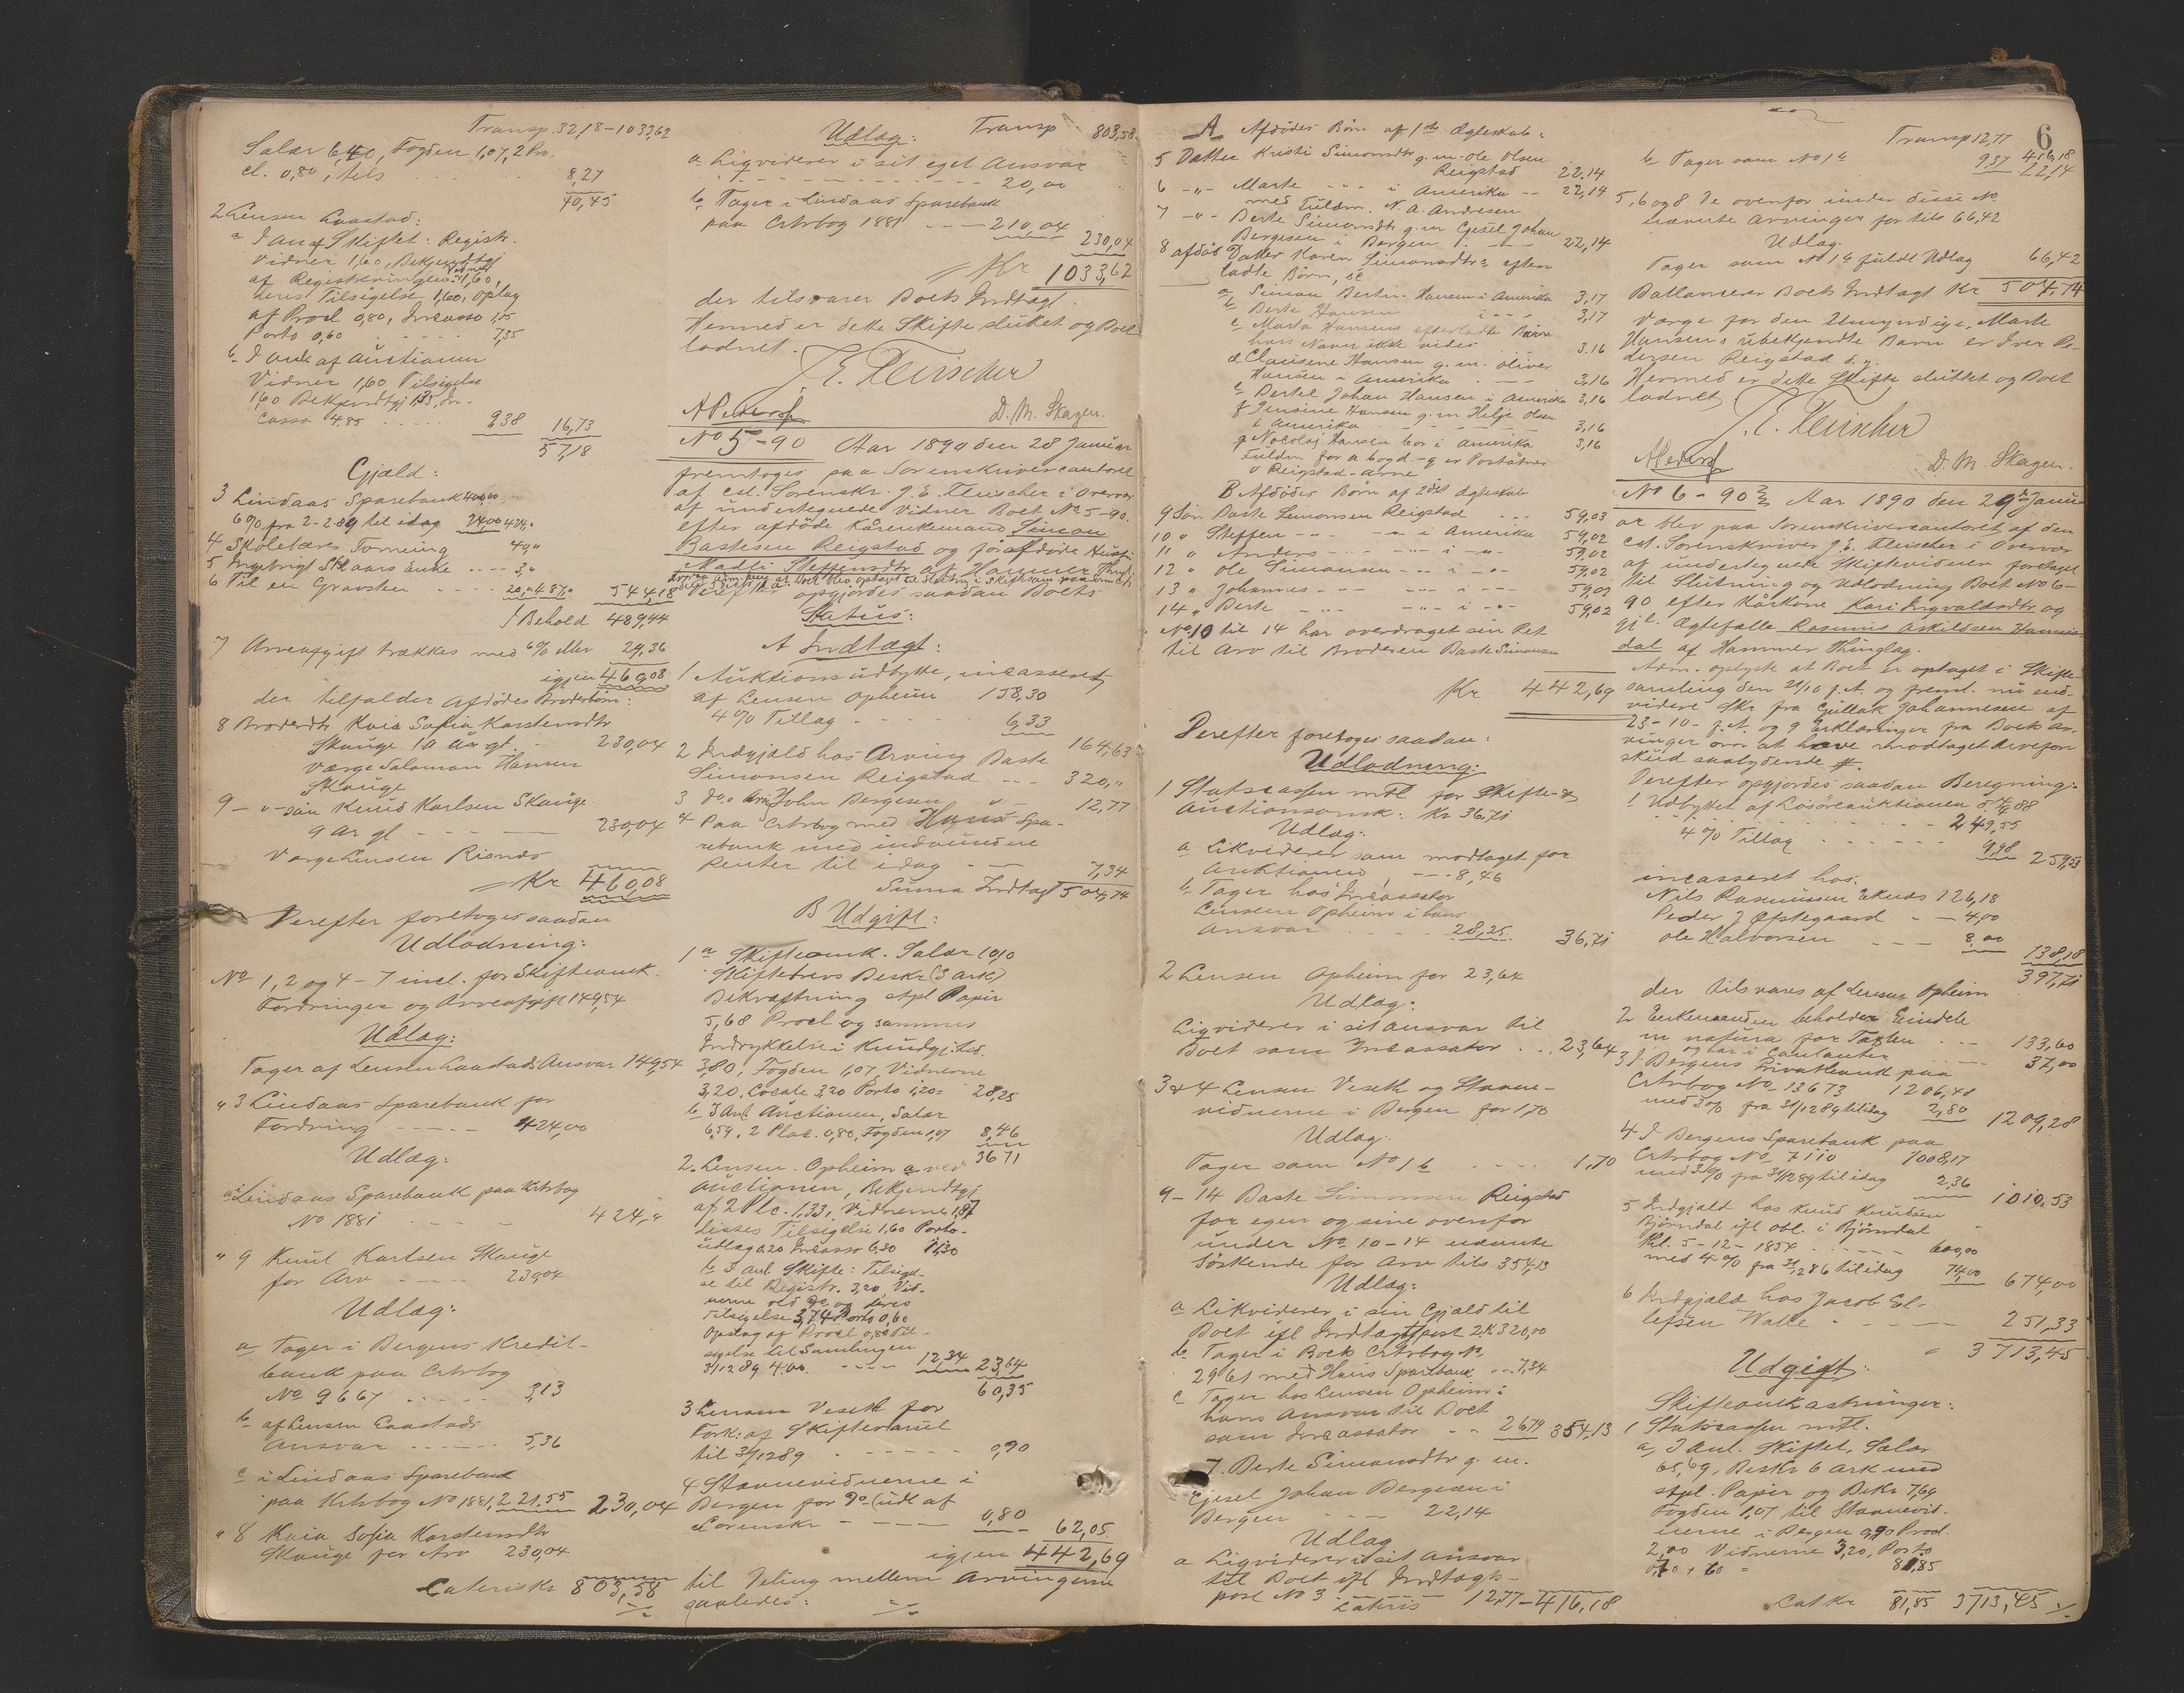 Transp. 32,18 – 1033,62
Salær 6,40, Fogden 1,07, 2 Pro.
cl. 0,80, tils . . . 8,27
40,45
2 Lensm Laastad:
a I anl af Skiftet: Registr.
Vidner 1,60, Bekjendtgj
af Registreringen 1,60,
deres Tilsigelse 1,60, Oplag
af Procl 0,80, Incasso 1,15
Porto 0,60 . . . 7,35
b. I anl. af Auctionen
Vidner 1,60 Tilsigelse
1,60 Bekjendtgj 1,35, In-
casso 4,85 . . . 9,38 16,73
57,18
Gjæld:
3 Lindaas Sparebank 400,00
6% fra 2-2-89 til idag 24,00 424,"
4 Skolelærer Torning 40,"
5 Ingebrigt Skaars Enke ---- 3,"
6 Til en Gravsten . . . 20,"
487,"
544,18
I Behold 489,44
7 Arveafgift trækkes med 6% eller 29,36
igjen 460,08
der tilfalder Afdødes Broderbørn:
8 Broderdtr Kaia Sofia Karstensdtr
Skauge 10 Aar gl. - 230,04
Værge Salomon Hansen
Skauge
9 – " – søn Knud Karlsen Skauge
9 Ar gl - - - 230,04
Værge Lensm Risnæs
Kr 460,08
Derefter foretoges saadan
Udlodning:
No 1, 2 og 4 – 7 incl. for Skifteomk.
Fordringer og Arveafgift 149,54
Udlæg:
Tager af Lensm Laastads Ansvar 149,54
" 3 Lindaas Sparebank for
Fordring - - - - - 424,00
Udlæg:
a Lindaas Sparebank paa Ctrbog
No 1881 - - - 424,"
" 9 Knud Karlsen Skauge
for Arv - - - - 230,04
Udlæg:
a Tager i Bergens Kredit-
bank paa Ctrbog
No 9667 . . . . . 3,13
b af Lensm Laastads
Ansvar - - - - - - 5,36
c i Lindaas Sparebank
paa Ctrbog No 1881 221,55 230,04
" 8 Kaia Sofia Karstensdtr
Skauge for Arv 230,04
Lateris Kr 803,58
Udlæg: Transp 803,58
a Liqviderer i sit eget Ansvar
- - - - - - 20,00
b Tager i Lindaas Sparebank
paa Ctrbog 1881 - - - 210,04
230,04
Kr 1033,62
der tilsvarer Boets Indtægt.
Hermed er dette Skifte sluttet og Boet
lodnet.
J. E. Fleischer
A Pedersen D. M. Skagen.
No 5 – 90 Aar 1890 den 28 Januar
fremtoges paa Sorenskrivercontoret
af cst. Sorenskr. J. E. Fleischer i Overvær
af undertegnede Vidner Boet No 5-90.
efter afdöde Kårenkemand Simon
Bastesen Reigstad og før afdøde Hustru
Madli Steffensdtr af Hammer Thingl.
Derefter opgjordes saadan Boets
Status:
A Indtægt:
1 Auktionsudbytte, incasseret
af Lensm Opheim 158,30
4% Tillæg - - - - - 6,33
164,63
2 Indgjæld hos Arving Baste
Simonsen Reigstad --- 320,"
3 do. Arv. John Bergesen " - 12,77
4 Paa Ctrbog med Haus Spa-
rebank med indvundne
Renter til i dag - - 7,34
Suma Indtægt 504,74
B Udgift:
1 a Skifteomk. Salær 10,10
Skiftebrevs Beskr (3 ark)
Bekræftning stpl Papir
5,68 Procl og sammes
Indrykkelse i Kundgj.tid.
3,80, Fogden 1,07, Vidnerne
3,20, Locale 3,20 Porto 1,20 = 28,25
b I Anl Auctionen, Salær
6,59, 2 Plac. 0,80, Fogden 1,07 8,46
36 71
2. Lensm. Opheim a ved
Auctionen, Bekjendtgj
af 2 Plc. 1,33, Vidnerne 1,87
disses Tilsigelse 1,60 Porto-
udlæg 0,20 Incasso 6,30 11,30
b I Anl. Skifte: Tilsigel-
se til Registr. 3,20, Vid-
nerne ved do og deres
Tilsigelse 3,74 Porto 0,60
Opslag af Procl 0,80 Til-
sigelse til Samlingen
3/12 89 4.00. - - - - 12,34 23,64
60,35
3 Lensm Veseth for
Fork: af Skiftevarsel
til 3/12 89 - - - - - - 0,90
4 Stævnevidnerne i
Bergen for do (udl af
Sorenskr - - - - - 0,80 62,05
igjen 442,69
til Deling mellem Arvingerne
saaledes:
6
A Afdödes Børn af 1ste Ægteskab:
5 Datter Kristi Simonsdtr g.m. Ole Olsen
Reigstad 22.14
6 – " – Marte - - - i Amerika -- 22,14
med Fuldm. N. A. Andresen
7 – " – Berte Simonsdtr g.m Gjesel Johan
Bergesen i Bergen - - - 22,14
8 afdød Datter Karen Simonsdtrs efter-
ladte Børn, se
a Simon Bertin Hansen i Amerika 3,17
b Berte Hansen i - - - 3,17
c Marta Hansens efterladte Børn
hvis Navn ikke vides 3.16
d Clausine Hansen g.m. Oliver
Hansen i Amerika - - - 3,16
e Bertel Johan Hansen i Amerika 3,16
f Jensine Hansen g.m Helje Olsen
i Amerika - - - 3.16
g Nocolaj Hansen bor i Amerika 3,16
Fuldm. for a b og d. – g er Postaabner
O Reigstad – Arne
B Afdödes Børn af 2det Ægteskab
9 Søn Baste Simonsen Reigstad - - - 59,03
10 " Steffen - - - - " - i Amerika 59,02
11 " Anders - - - - " - i - " - 59,02
12 " Ole Simonsen - - i - " - 59,02
13 " Johannes - - - - - i - - 59,02
14 " Berte - - - - - i - " - 59,02
No 10 til 14 har overdraget sin Ret
til Arv til Broderen Baste Simonsen
Kr 442,69
Derefter foretoges saadan:
Udlodning:
1 Statscassen mtl for Skifte- &
Auctionsomk: Kr 36,71
Udlæg:
a Likviderer som modtaget for
Auktionen, - - - 8,46
b Tager hos Incassator
Lensm Opheim i hans
Ansvar - - - - 28,25 36,71
2 Lensm Opheim for 23,64
Udlæg:
Liqviderer i sit Ansvar til
Boet som Incassator . . 23,64
3 & 4 Lensm Veseth og Stævne-
vidnerne i Bergen for 1,70
Udlæg:
Tager som No 1 b . . . . 1,70
9 – 14 Baste Simonsen Reigstad
for egen og sine ovenfor
under No 10 – 14 nævnte
Söskende for Arv tils 354,13
Udlæg:
a Likviderer i sin Gjæld til
Boet ifl Indtægtspost 2 Kr 320,00
b Tager i Boets Ctrbog No
2961 med Haus Sparebank - - 7,34
c Tager hos Lensm Opheim i
hans Ansvar til Boet
som Incassator - - 26,79 354,13
7. Berte Simonsdtr g.m.
Gjesel Johan Bergesen i
Bergen - - - 22,14
Udlæg
a Liqviderer i sit Ansvar
til Boet ifl Indtægts-
post No 3 - Lateris 12,77 – 416,18
Transp 12,77 416,18
b Tager som No 1 b 9,37 22,14
5, 6 og 8 De ovenfor under disse No
nævnte Arvinger for tils 66,42
Udlæg.
Tager som No 1 b fuldt Udlæg 66,42
Ballancerer Boets Indtægt Kr 504,74
Værge for den Umyndige, Marte
Hansens ubekjendte Barn er Iver Pe-
dersen Reigstad d.y.
Hermed er dette Skifte sluttet og Boet
lodnet
J. E. Fleischer
A Pedersen D. M. Skagen.
No 6 – 90 Aar 1890 den 29 Janu-
ar blev paa Sorenskrivercontoret af den
cst. Sorenskriver J. E. Fleischer i Overvær
af undertegnede Skiftevidner foretaget
til Slutning og Udlodning Boet No 6 –
90 efter Kårkone Kari Ingvaldsdtr og
gjl. Ægtefælle Rasmus Askildsen Hannis-
dal af Hammer Thinglag.
Adm. oplyste at Boet er optaget i Skifte-
samling den 21/10 f.A. og freml. nu end-
videre Skr fra Gullak Johannesen af
23 – 10 – f.A. og 9 Erklæringer fra Boets Ar-
vinger om at have modtaget Arvefor-
skud saalydende
Derefter opgjordes saadan Beregning:
1 Udbyttet af Løsøreauktionen
- - - - - 249,55
4% Tillæg - - - - 9,98 259,53
incasseret hos.
Nils Rasmussen Eknes 126,18
Peder J Øfstegaard - - 4,00
Ole Halvorsen - - - 8,00
138,18
397,71
der tilsvares af Lensm Opheim
2 Enkemanden beholder Eiendele
in natura for Taxten - - - 133,60
og har i Contanter - - - 37,00
3 I Bergens Privatbank paa
Ctrbog No 13673 1206,48
med 3% fra 31/12 89 til idag 2,80 1209,28
4 I Bergens Sparebank paa
Ctrbog No 7110 1008,17
med 3% fra 31/12 89 til idag 2,36 1010,53
5 Indgjæld hos Knud Knudsen
Björndal ifl obl. i Björndal
tkl. 5 – 12 – 1854 - - - 600,00
med 4% fra 31/12 86 til idag 74,00 674,00
6 Indgjæld hos Jacob El-
lefsen Walle - - - - - 251,33
3713,45
Udgift:
Skifteomkostninger:
1 Statscassen mtl.
a I anl. Skiftet, Salær
65,69, Beskr 6 ark med
stpl. Papir og Bekr 7,64
Fogden 1,07 til Stævnevid-
nerne i Bergen 0,90 Procl.
2,00 Vidnerne 3,20, Porto
81,85
Lat Kr 81,85 3713,45